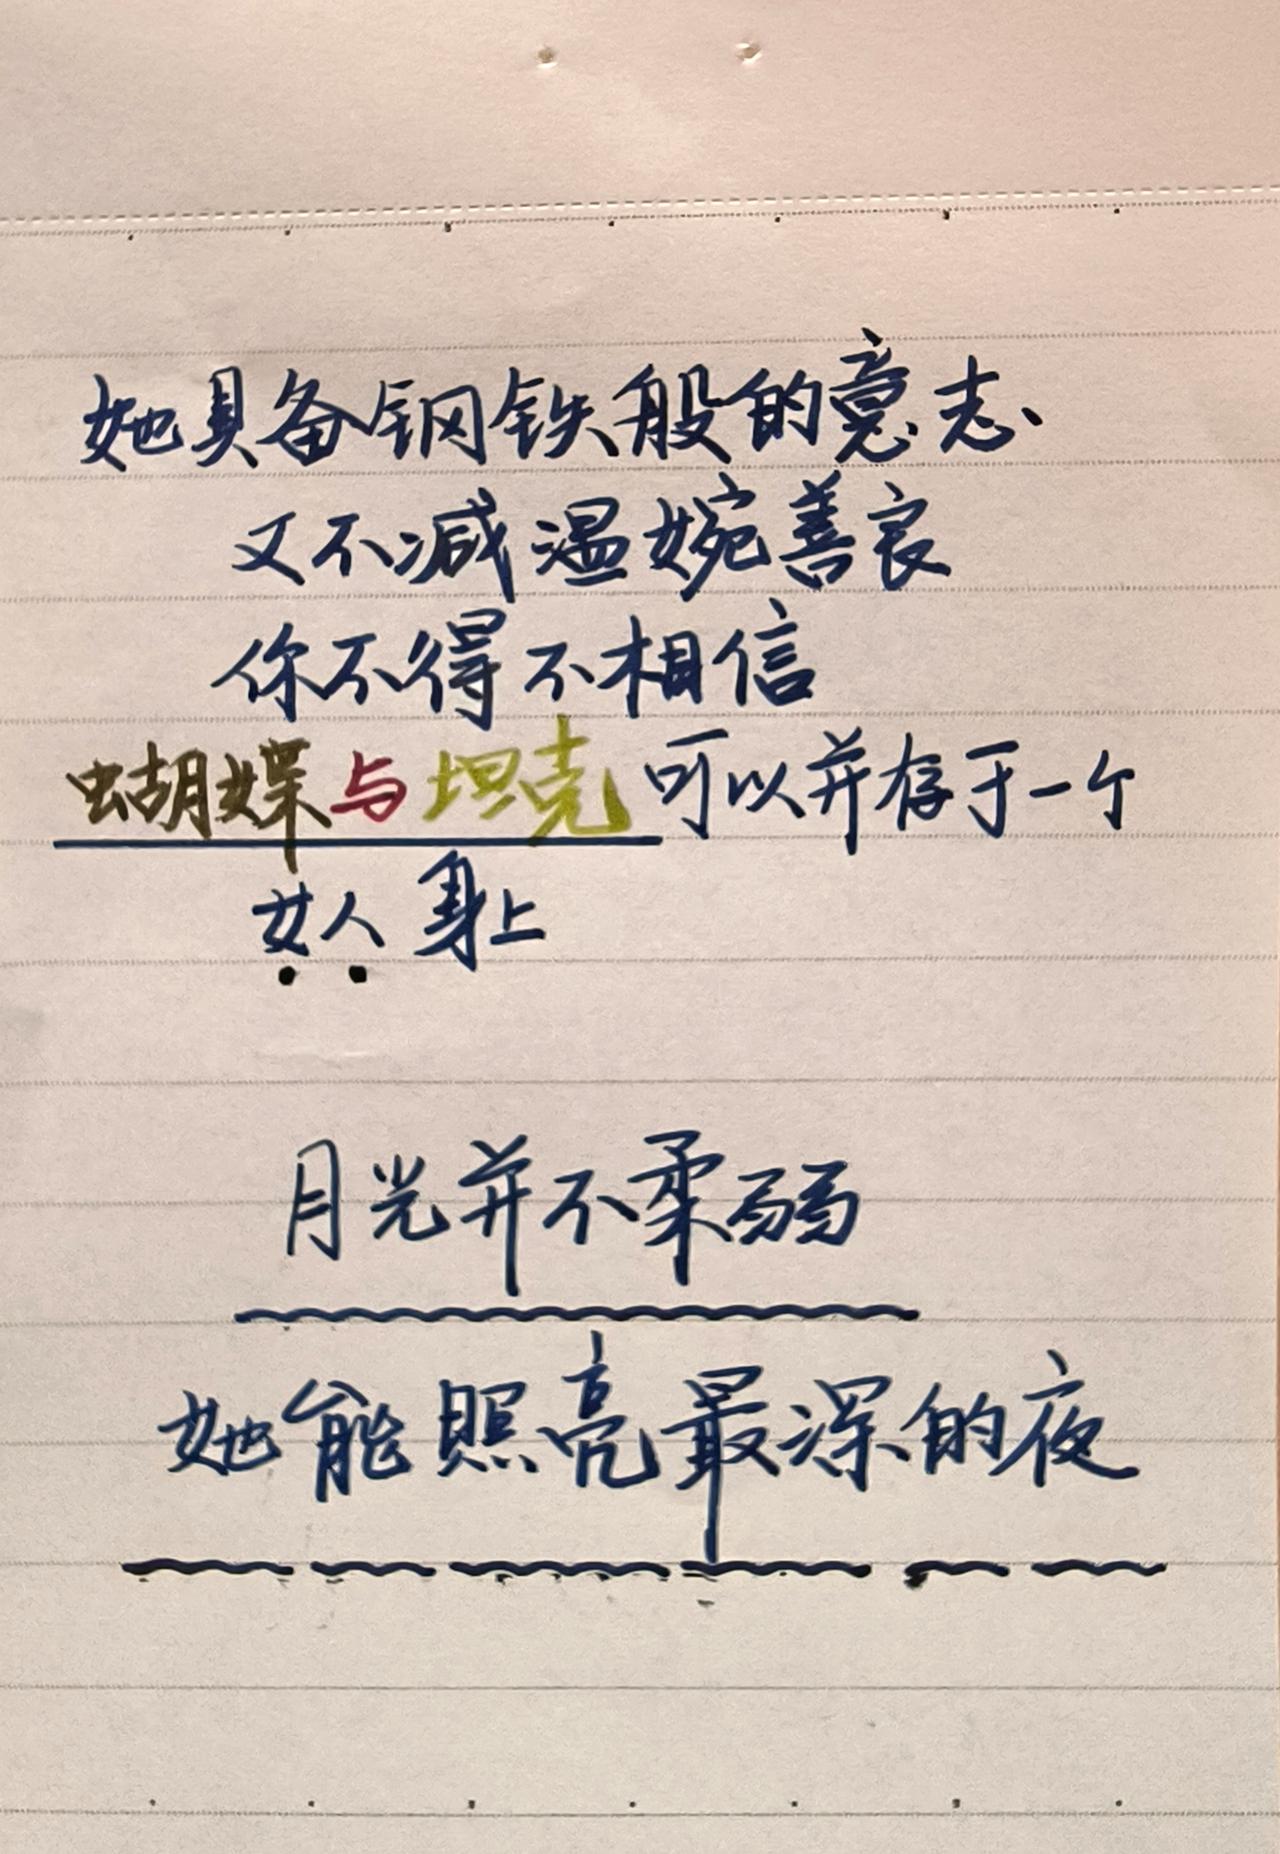 她具备钢铁般的意志、
又不减温婉善良
你不得不相信
蝴蝶与坦克可以并存于一个
女人身上
月光并不柔弱
她能照亮最深的夜